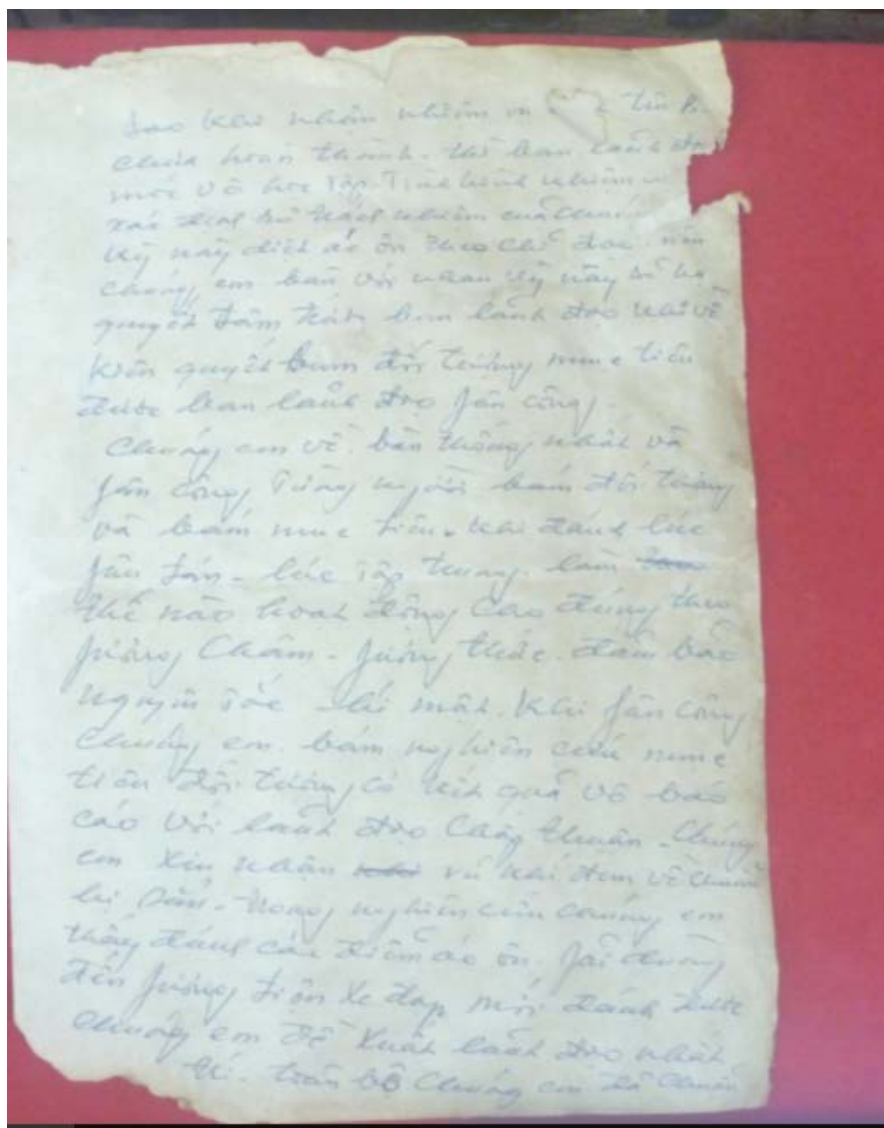 Sao khi nhận nhiệm vụ
chưa hoàn thành - thì ban lãnh đạo
mới về học tập. Tình hình nhiệm vụ
xác định rõ trách nhiệm của chúng
kỳ này diệt ác ôn theo chỉ đạo. nên
chúng em bàn với nhau kỳ này
quyết tâm trước ban lãnh đạo khi về
kiên quyết bám đối tượng mục tiêu
được ban lãnh đạo fân công.
Chúng em về. bàn thống nhất và
fân công từng người bám đối tượng
và bám mục tiêu. khi đánh lúc
fân tán - lúc tập trung. làm
thế nào hoạt động cao đúng theo
fương Châm - fương thức. đảm bảo
nguyên tắc - bí mật. Khi fân công
chúng em. bám nghiên cứu mục
tiêu đối tượng có kết quả về báo
cáo với lãnh đạo Chấp thuận - Chúng
em xin nhận vũ khí đem về chuẩn
bị sẵn. trong nghiên cứu chúng em
thấy đánh các điểm ác ôn. fải dùng
đến fương tiện xe đạp mới đánh được
Chúng em đề xuất lãnh đạo nhất
trí. toàn bộ Chúng em đã chuẩn